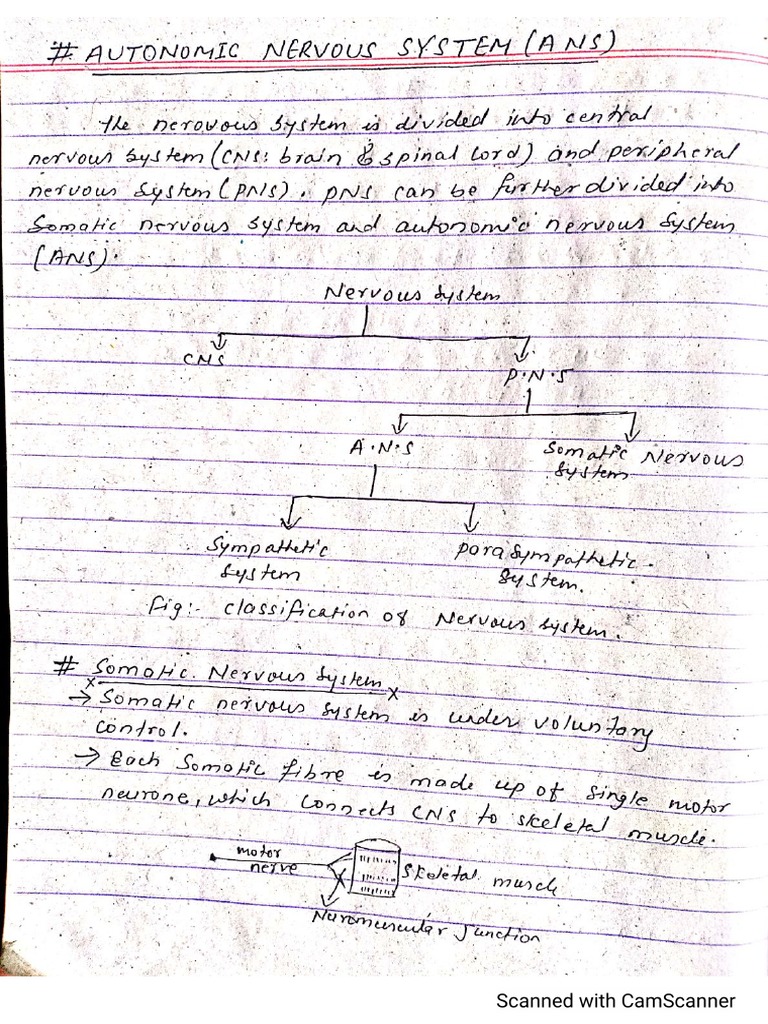 # AUTONOMIC NERVOUS SYSTEM (ANS)
The nerovous system is divided into central
nervous system (CNS: brain & spinal lord) and peripheral
nervous system (PNS). PNS can be further divided into
Somatic nervous system and autonomic nervous system
(ANS).
Nervous system
CNS
P.N.S
A.N.S
Somatic Nervous
system
Sympathetic
system
parasympathetic.
system.
Fig:- classification of Nervous system.
# Somatic Nervous System
→ Somatic nervous system is under voluntary
control.
→ Each somatic fibre is made up of single motor
neurone, which connects CNS to skeletal muscle.
motor
nerve
Skeletal muscle
Nuromuscular junction
Scanned with CamScanner